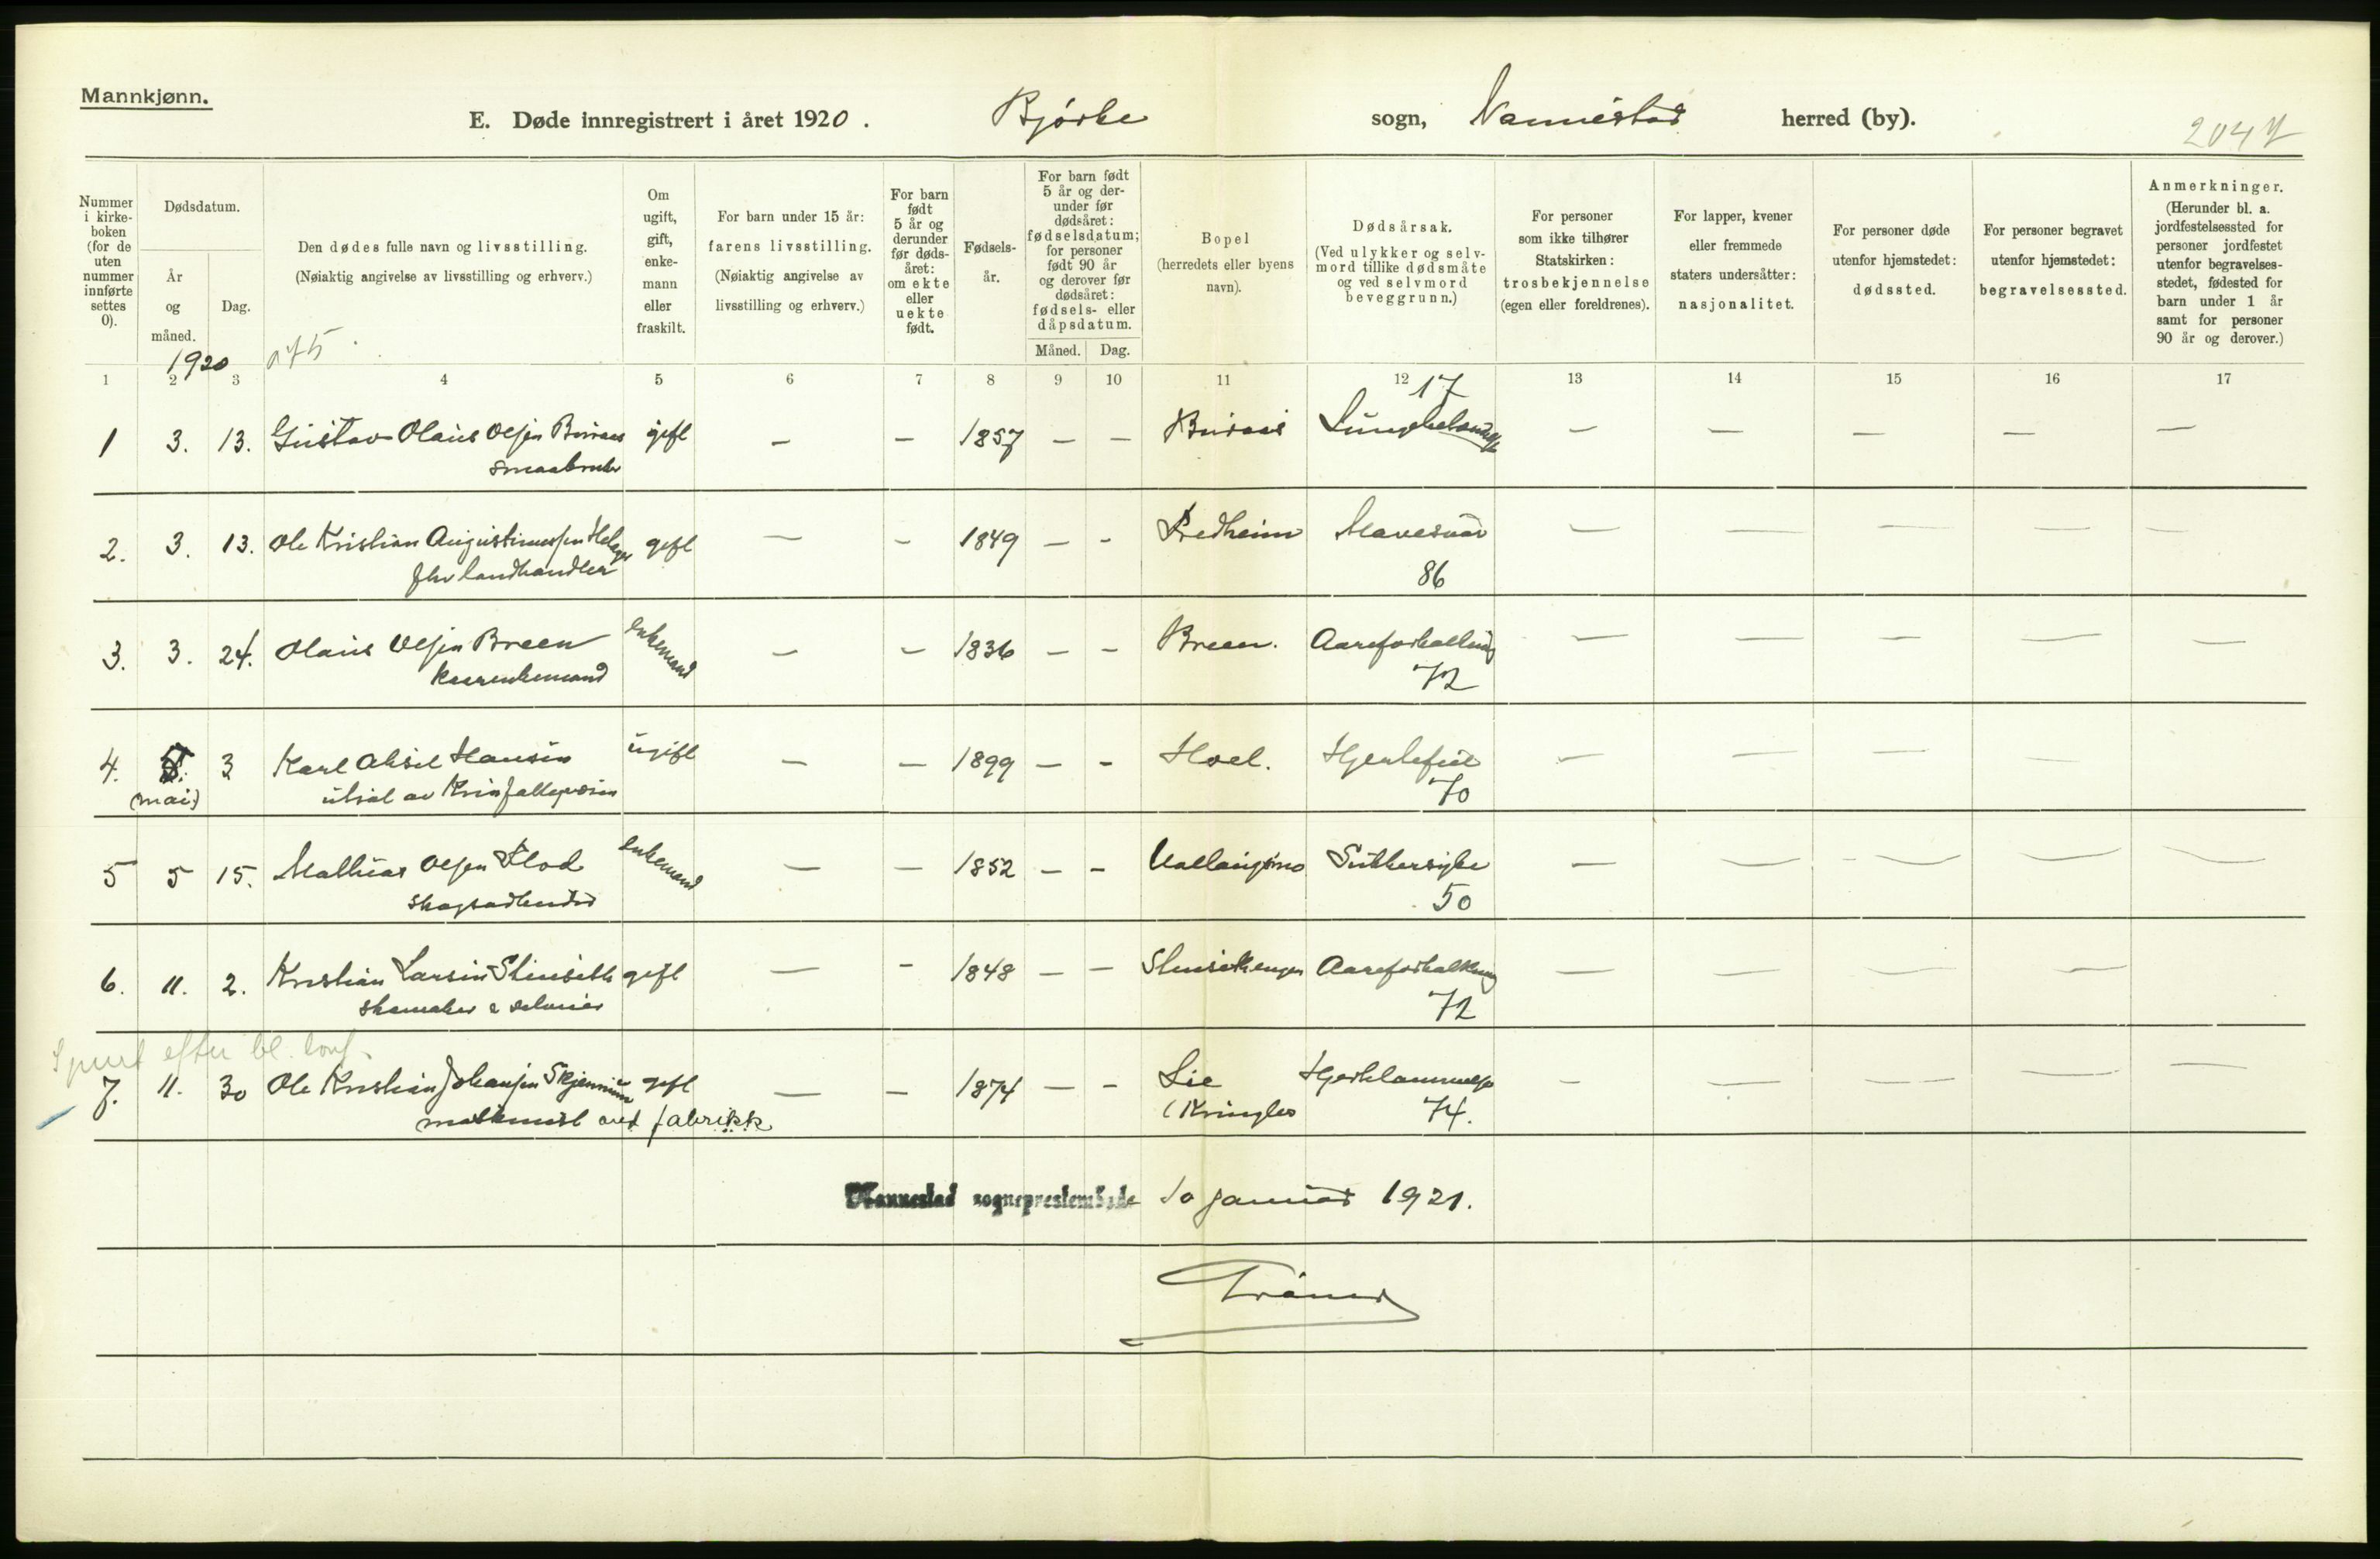 Mannkjønn.
E. Døde innregistrert i året 1920. Bjørke sogn, Nannestad herred (by).
2047
Nummer i kirkeboken (for de uten nummer innførte settes 0).
Dødsdatum.
År og måned.
Dag.
Den dødes fulle navn og livsstilling.
(Nøiaktig angivelse av livsstilling og erhverv.)
Om ugift, gift, enkemann eller fraskilt.
For barn under 15 år: farens livsstilling.
(Nøiaktig angivelse av livsstilling og erhverv.)
For barn født 5 år og derunder før dødsåret: om ekte eller uekte født.
Fødselsår.
For barn født 5 år og derunder før dødsåret: fødselsdatum; for personer født 90 år og derover før dødsåret: fødsels- eller dåpsdatum.
Måned. Dag.
Bopel
(herredets eller byens navn).
Dødsårsak.
(Ved ulykker og selvmord tillike dødsmåte og ved selvmord beveggrunn.)
For personer som ikke tilhører Statskirken: trosbekjennelse (egen eller foreldrenes).
For lapper, kvener eller fremmede staters undersåtter: nasjonalitet.
For personer døde utenfor hjemstedet: dødssted.
For personer begravet utenfor hjemstedet: begravelsessted.
Anmerkninger.
(Herunder bl. a. jordfestelsessted for personer jordfestet utenfor begravelsesstedet, fødested for barn under 1 år samt for personer 90 år og derover.)
1920
1 2 3 4 5 6 7 8 9 10 11 12 13 14 15 16 17
17
1 3. 13. Gustav Olaus Olsen gift — — 1857 — — — — — — —
smaabruker
2. 3. 13. Ole Kristian Augustinussen gift — — 1849 — — Fredheim Mavesaar — — — — —
fhv landhandler 86
3. 3. 24. Olaus Olsen Breen enkemand — — 1836 — — Breen. Aareforkalkning — — — — —
kaarenkemand 72
4. 5. 3 Karl Aksel Hansen ugift — — 1899 — — Hoel. Hjertefeil — — — —
(mai) 70
5 5 15. Mathias Olsen enkemand — — 1852 — — Sukkersyke — — — — —
skogsarbeider 50
6. 11. 2. Kristian Larsen gift — — 1848 — — Aareforkalkning — — — — —
skomaker 72
Spurt efter bl. konf.
7. 11. 30 Ole Kristian Johansen gift — — 1874 — — Lie Hjertelammelse — — — — —
maskinist ved fabrikk (Kringler 74.
Nannestad sogneprestembede 10 januar 1921.